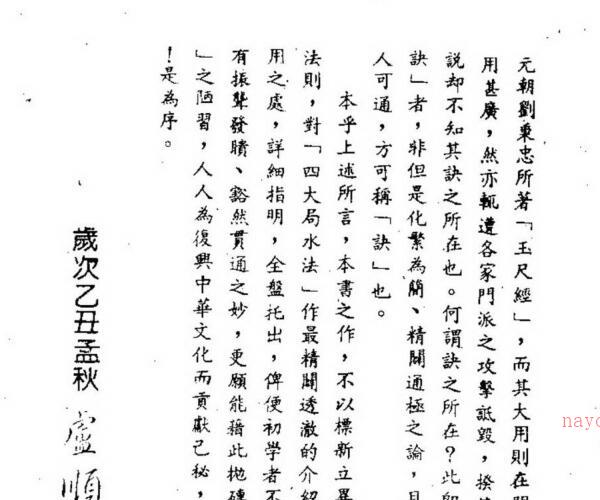 元朝劉秉忠所著「玉尺經」,而其大用則在
用甚廣,然亦輒遭各家門派之攻擊詆毀,揆
説却不知其訣之所在也。何謂訣之所在?此
訣」者,非但是化繁為簡、精闢通極之論,且
人可通,方可稱「訣」也。
本乎上述所言,本書之作,不以標新立異
法則,對「四大局水法」作最精闢透澈的介紹
用之處,詳細指明,全盤托出,俾便初學者不
有振聾發瞶、豁然貫通之妙,更願能藉此拋磚
」之陋習,人人為復興中華文化而貢獻己秘,
!是為序。
歲次乙丑孟秋
盧順
nayo